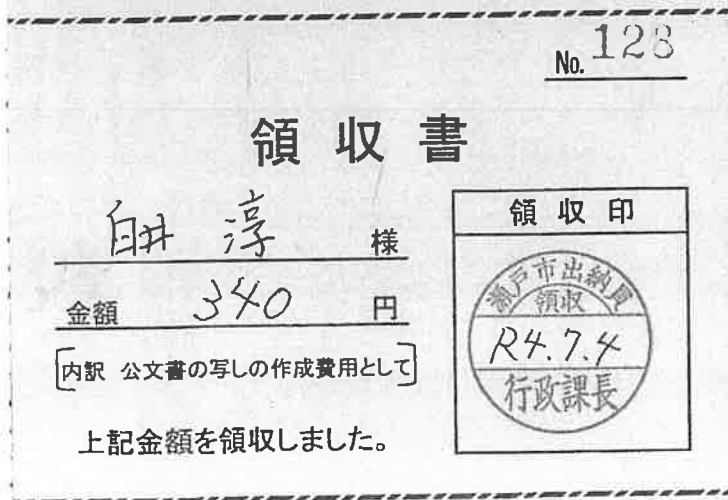 No. 128
領収書
臼井 淳 様
金額 340 円
[内訳 公文書の写しの作成費用として]
上記金額を領収しました。
領収印
瀬戸市出納員
領収
R4.7.4
行政課長